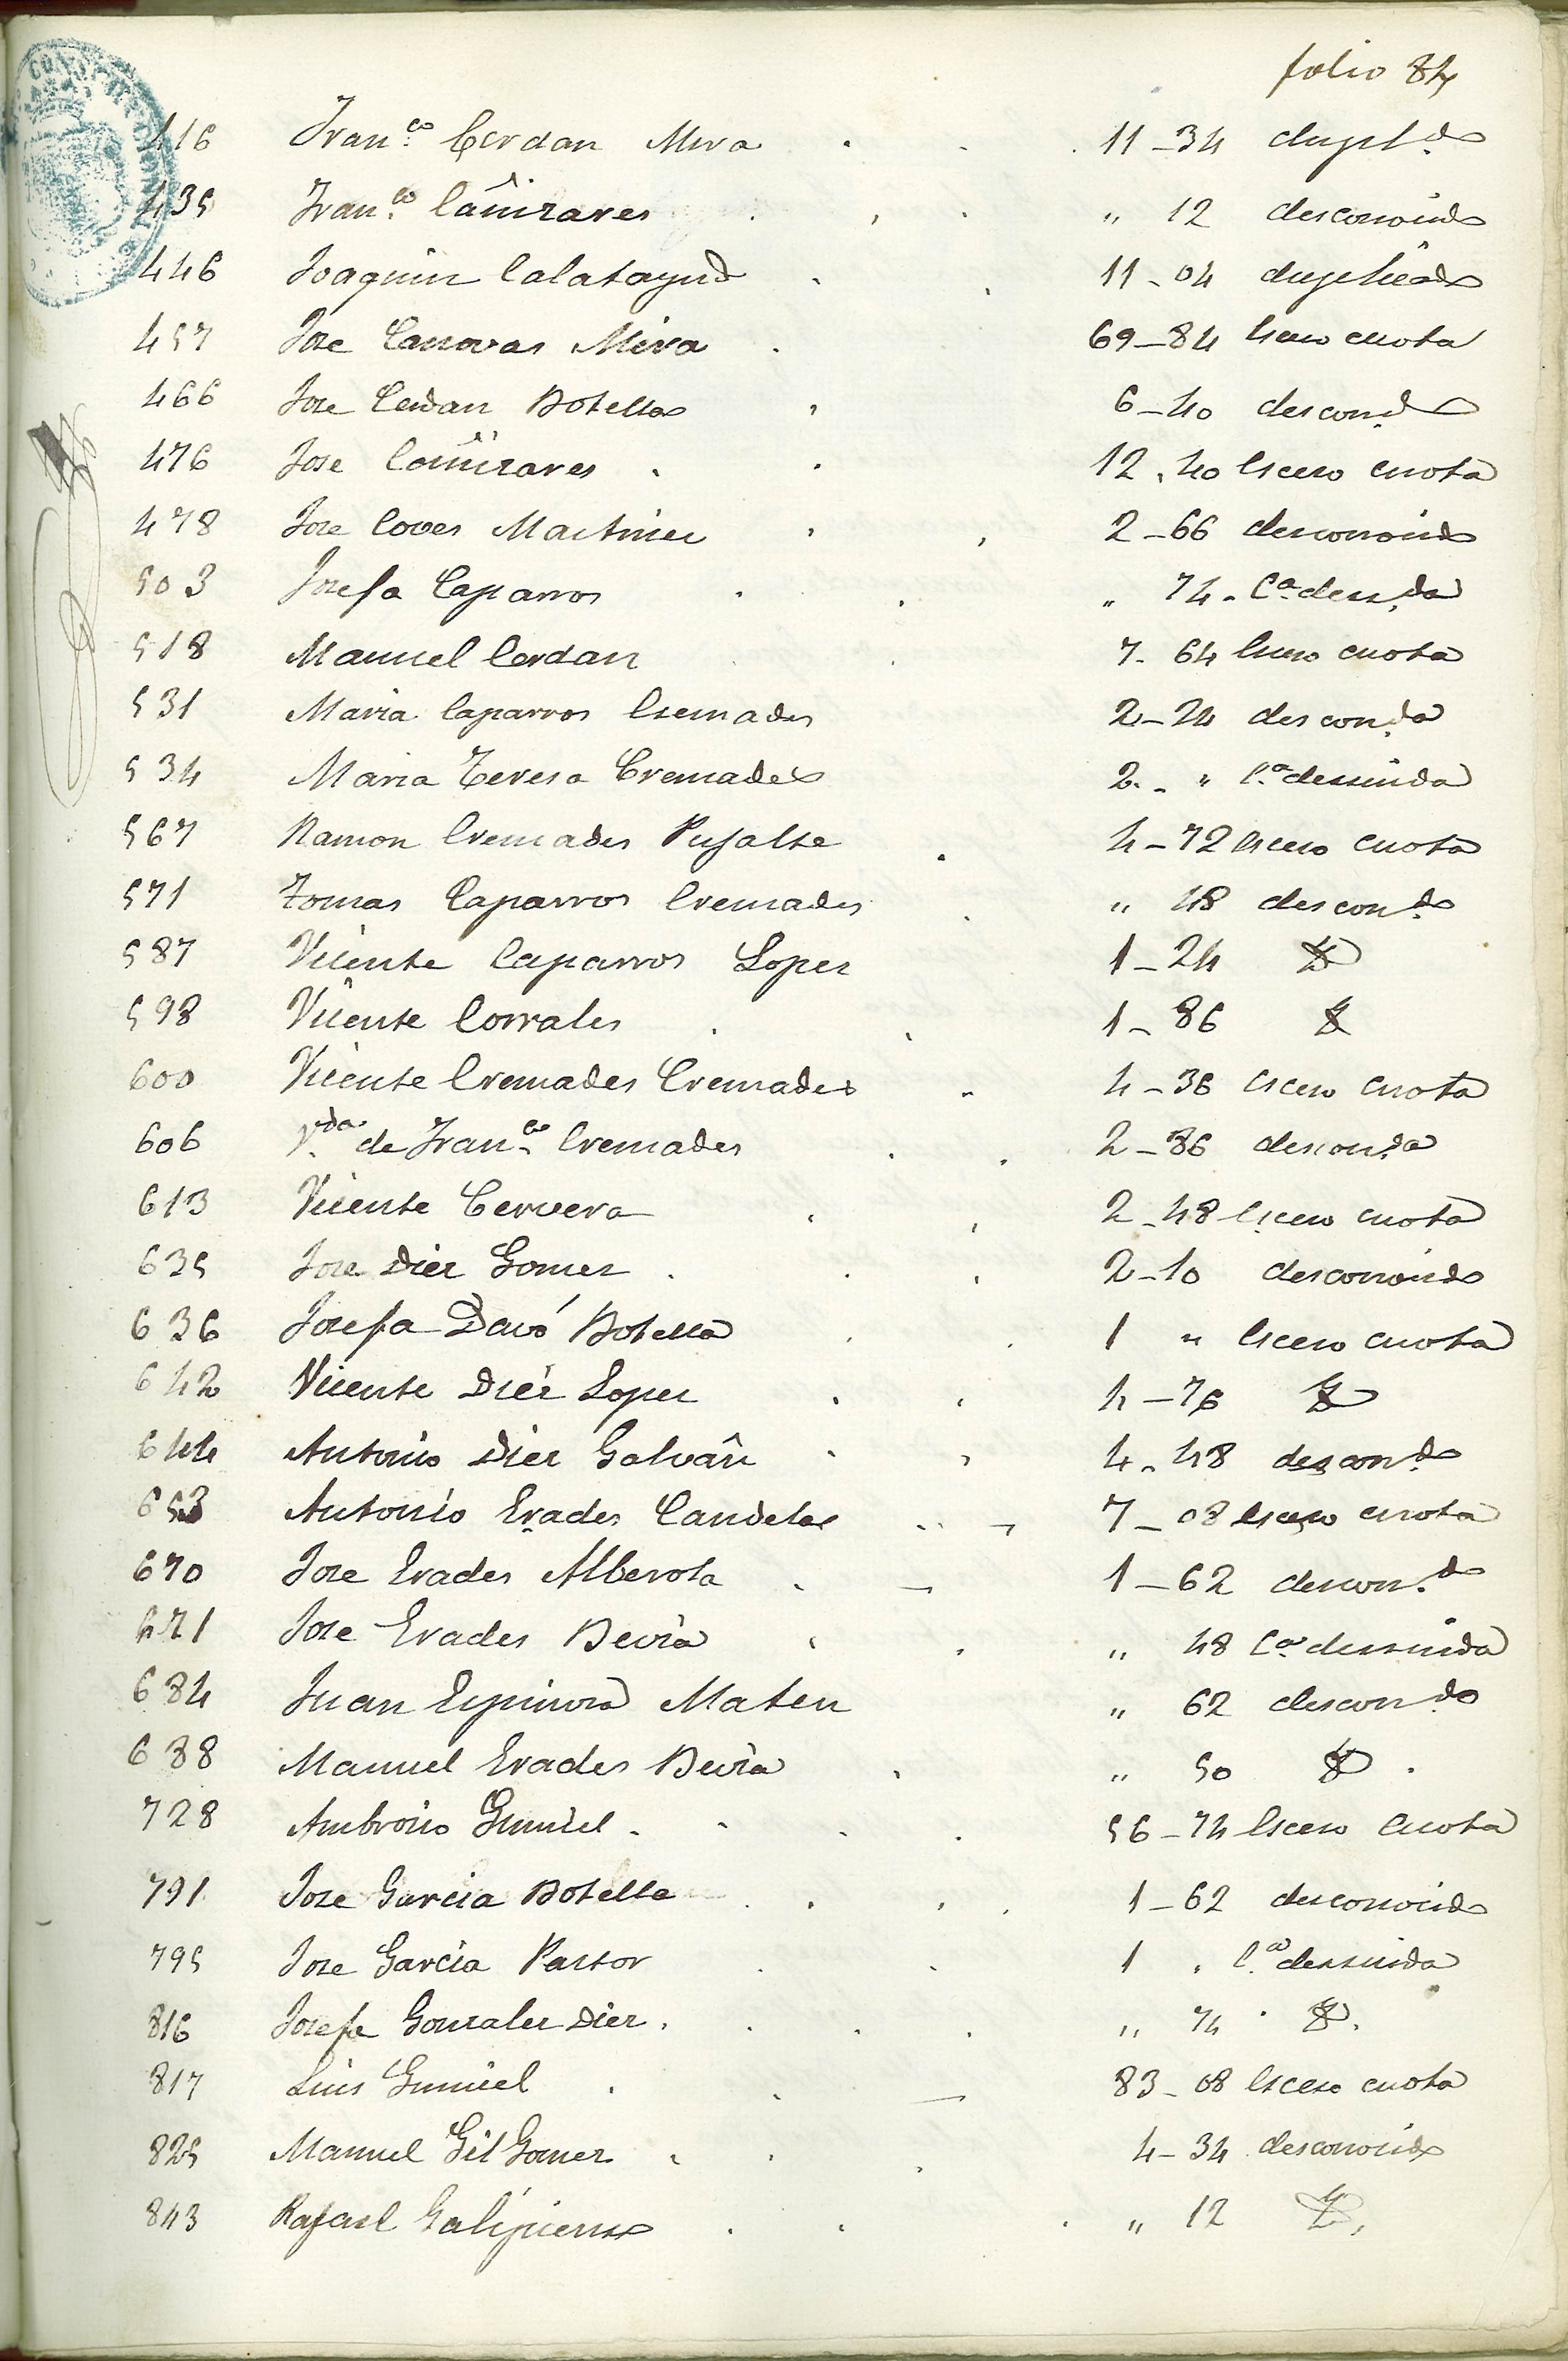 folio 84
416 Fran.co Cerdan Mira 11-34 dupl.do
435 Fran.co Cañizares " 12 desconocido
446 Joaquin Calatayud 11-04 duplicado
457 Jose Canovas Mira 69-84 Esceso cuota
466 Jose Cerdan Botella 6-40 descon.do
476 Jose Cañizares 12.40 Esceso cuota
478 Jose Coves Martinez 2-66 desconocido
503 Josefa Caparros " 74. C.a
518 Manuel Cerdan 7-64 Esceso cuota
531 Maria Caparros Cremades 2-24 descon.da
534 Maria Teresa Cremades 2. - " C.a
567 Ramon Cremades Pujalte 4-72 Esceso cuota
571 Tomas Caparros Cremades " 48 descon.do
587 Vicente Caparros Lopez 1-24
598 Vicente Corrales 1-86
600 Vicente Cremades Cremades 4-36 Esceso cuota
606 V.da de Fran.co Cremades 2-86 descon.da
613 Vicente Cervera 2-48 Esceso cuota
635 Jose Diez Gomez 2-10 desconocido
636 Josefa Davó Botella 1 " Esceso cuota
642 Vicente Diez Lopez 4-76
644 Antonio Diez Galvañ 4-48 descon.do
653 Antonio Erades Candela 7-08 Esceso cuota
670 Jose Erades Alberola 1-62 descon.do
671 Jose Erades Bevia " 48 C.a
684 Juan Espinosa Mateu " 62 descon.do
688 Manuel Erades Bevia " 50
728 Ambrosio Gumiel 56-74 Esceso cuota
791 Jose Garcia Botella 1-62 desconocido
795 Jose Garcia Pastor 1 . C.a
816 Josefa Gonzalez Diez " 74
817 Luis Gumiel 83-08 Esceso cuota
825 Manuel Gil Gomez 4-34 desconocido
843 Rafael Galipienso " 12